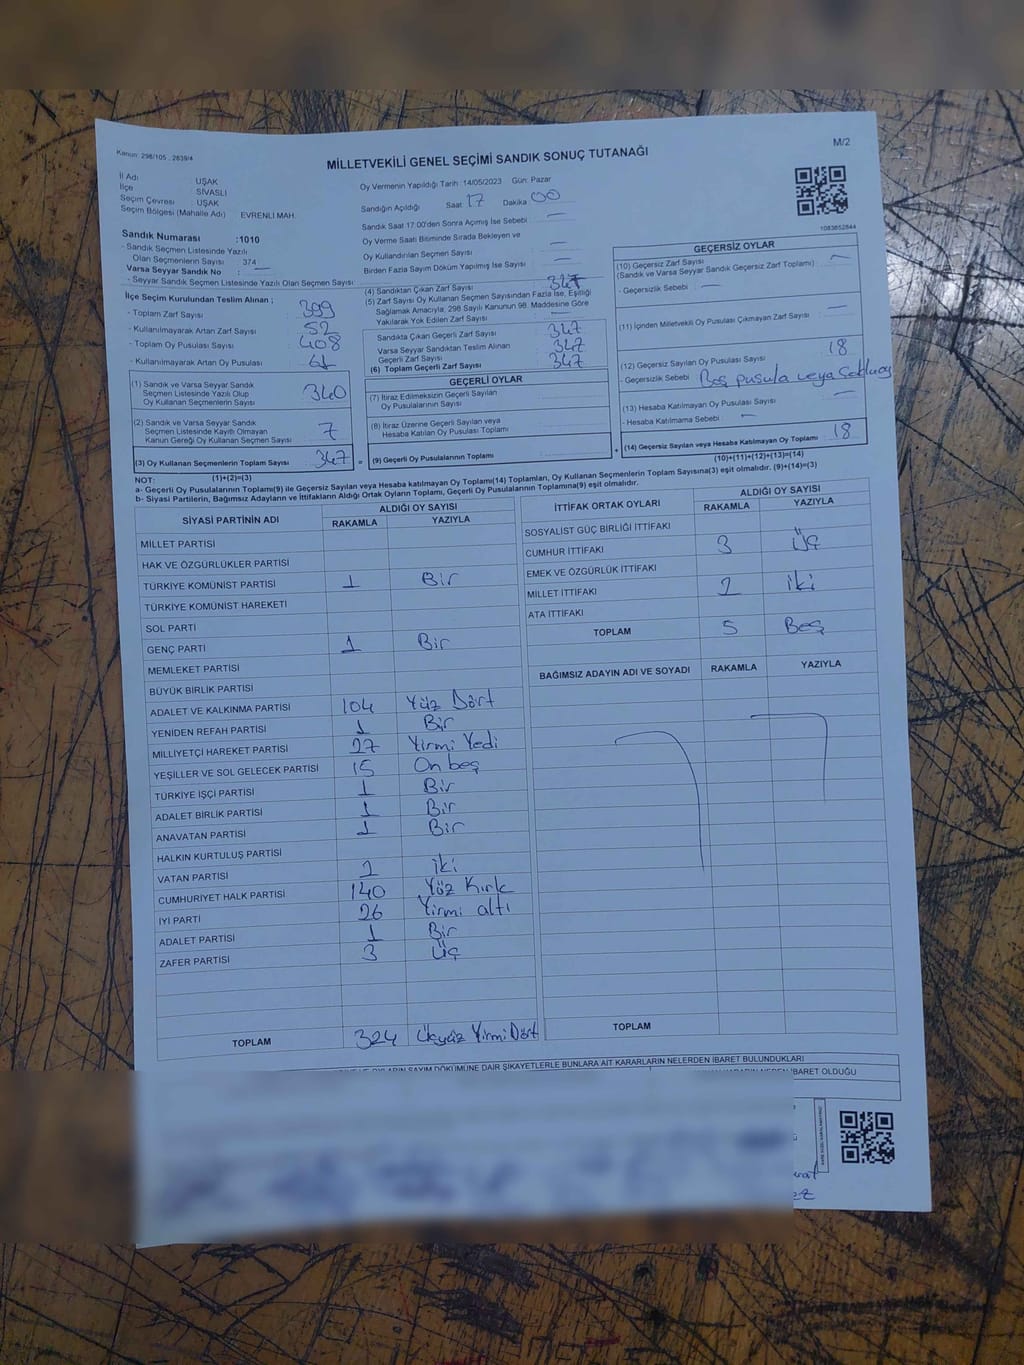 Kanun: 298/105 , 2839/4
M/2
MİLLETVEKİLİ GENEL SEÇİMİ SANDIK SONUÇ TUTANAĞI
İl Adı : UŞAK
İlçe : SİVASLI
Seçim Çevresi : UŞAK
Seçim Bölgesi (Mahalle Adı) EVRENLİ MAH.
Sandık Numarası :1010
- Sandık Seçmen Listesinde Yazılı
Olan Seçmenlerin Sayısı 374
Varsa Seyyar Sandık No : —
- Seyyar Seçmen Listesinde Yazılı Olan Seçmen Sayısı
Oy Vermenin Yapıldığı Tarih :14/05/2023 Gün: Pazar
Sandığın Açıldığı Saat 17 Dakika 00
Sandık Saat 17:00'den Sonra Açmış İse Sebebi —
Oy Verme Saati Bitiminde Sırada Bekleyen ve
Oy Kullandırılan Seçmen Sayısı —
Birden Fazla Sayım Döküm Yapılmış İse Sayısı —
1083652844
İlçe Seçim Kurulundan Teslim Alınan ;
- Toplam Zarf Sayısı 399
- Kullanılmayarak Artan Zarf Sayısı 52
- Toplam Oy Pusulası Sayısı 408
- Kullanılmayarak Artan Oy Pusulası 61
(1) Sandık ve Varsa Seyyar Sandık
Seçmen Listesinde Yazılı Olup
Oy Kullanan Seçmenlerin Sayısı 340
(2) Sandık ve Varsa Seyyar Sandık
Seçmen Listesinde Kayıtlı Olmayan
Kanun Gereği Oy Kullanan Seçmen Sayısı 7
(3) Oy Kullanan Seçmenlerin Toplam Sayısı 347
(1)+(2)=(3)
(4) Sandıktan Çıkan Zarf Sayısı 347
(5) Zarf Sayısı Oy Kullanan Seçmen Sayısından Fazla İse, Eşitliği
Sağlamak Amacıyla, 298 Sayılı Kanunun 98. Maddesine Göre
Yakılarak Yok Edilen Zarf Sayısı —
Sandıkta Çıkan Geçerli Zarf Sayısı 347
Varsa Seyyar Sandıktan Teslim Alınan
Geçerli Zarf Sayısı 347
(6) Toplam Geçerli Zarf Sayısı 347
GEÇERLİ OYLAR
(7) İtiraz Edilmeksizin Geçerli Sayılan
Oy Pusulalarının Sayısı
(8) İtiraz Üzerine Geçerli Sayılan veya
Hesaba Katılan Oy Pusulası Toplamı
= (9) Geçerli Oy Pusulalarının Toplamı
GEÇERSİZ OYLAR
(10) Geçersiz Zarf Sayısı —
(Sandık ve Varsa Seyyar Sandık Geçersiz Zarf Toplamı)
- Geçersizlik Sebebi —
(11) İçinden Milletvekili Oy Pusulası Çıkmayan Zarf Sayısı —
(12) Geçersiz Sayılan Oy Pusulası Sayısı 18
- Geçersizlik Sebebi Boş pusula veya
(13) Hesaba Katılmayan Oy Pusulası Sayısı —
- Hesaba Katılmama Sebebi —
+ (14) Geçersiz Sayılan veya Hesaba Katılmayan Oy Toplamı 18
(10)+(11)+(12)+(13)=(14)
NOT:
a- Geçerli Oy Pusulalarının Toplamı(9) ile Geçersiz Sayılan veya Hesaba katılmayan Oy Toplamı(14) Toplamları, Oy Kullanan Seçmenlerin Toplam Sayısına(3) eşit olmalıdır. (9)+(14)=(3)
b- Siyasi Partilerin, Bağımsız Adayların ve İttifakların Aldığı Ortak Oyların Toplamı, Geçerli Oy Pusulalarının Toplamına(9) eşit olmalıdır.
SİYASİ PARTİNİN ADI ALDIĞI OY SAYISI
RAKAMLA YAZIYLA
MİLLET PARTİSİ
HAK VE ÖZGÜRLÜKLER PARTİSİ
TÜRKİYE KOMÜNİST PARTİSİ 1 Bir
TÜRKİYE KOMÜNİST HAREKETİ
SOL PARTİ
GENÇ PARTİ 1 Bir
MEMLEKET PARTİSİ
BÜYÜK BİRLİK PARTİSİ
ADALET VE KALKINMA PARTİSİ 104 Yüz Dört
YENİDEN REFAH PARTİSİ 1 Bir
MİLLİYETÇİ HAREKET PARTİSİ 27 Yirmi Yedi
YEŞİLLER VE SOL GELECEK PARTİSİ 15 On beş
TÜRKİYE İŞÇİ PARTİSİ 1 Bir
ADALET BİRLİK PARTİSİ 1 Bir
ANAVATAN PARTİSİ 1 Bir
HALKIN KURTULUŞ PARTİSİ
VATAN PARTİSİ 2 iki
CUMHURİYET HALK PARTİSİ 140 Yüz Kırk
İYİ PARTİ 26 Yirmi altı
ADALET PARTİSİ 1 Bir
ZAFER PARTİSİ 3 Üç
TOPLAM 324 Üçyüz Yirmi Dört
İTTİFAK ORTAK OYLARI ALDIĞI OY SAYISI
RAKAMLA YAZIYLA
SOSYALİST GÜÇ BİRLİĞİ İTTİFAKI
CUMHUR İTTİFAKI 3 Üç
EMEK VE ÖZGÜRLÜK İTTİFAKI
MİLLET İTTİFAKI 2 iki
ATA İTTİFAKI
TOPLAM 5 Beş
BAĞIMSIZ ADAYIN ADI VE SOYADI RAKAMLA YAZIYLA
TOPLAM
VE OYLARIN SAYIM DÖKÜMÜNE DAİR ŞİKAYETLERLE BUNLARA AİT KARARLARIN NELERDEN İBARET BULUNDUKLARI
KARARIN NEDEN İBARET OLDUĞU